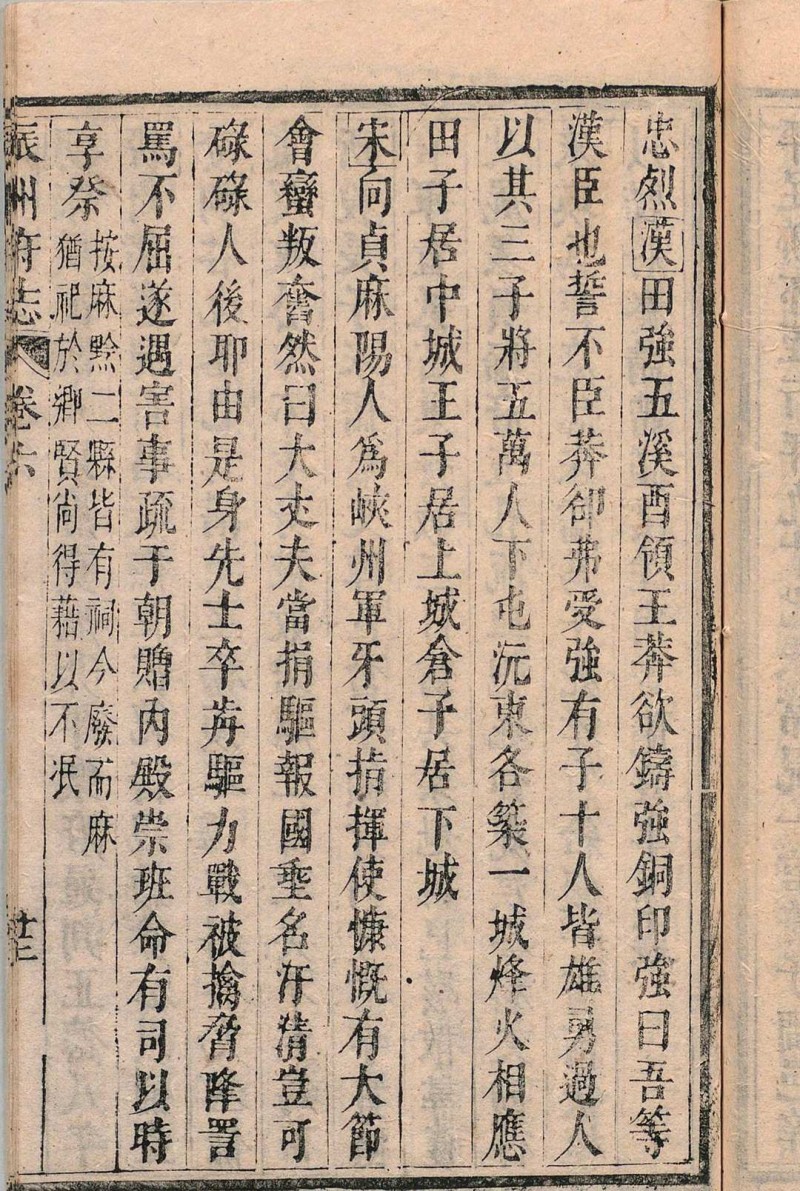 忠烈漢田強五溪酉領王莽欲鑄強銅印強曰吾等
漢臣也誓不臣莽卻弗受強有子十人皆雄勇過人
以其三子將五萬人下屯沅東各築一城烽火相應
田子居中城王子居上城倉子居下城
宋向貞麻陽人為峽州軍牙頭指揮使慷慨有大節
會蠻叛奮然曰大丈夫當捐驅報國垂名汗靑豈可
碌碌人後耶由是身先士卒奔驅力戰被擒脅降詈
罵不屈遂遇害事疏于朝贈內殿崇班命有司以時
享祭
按麻黔二縣皆有祠今廢而麻
猶祀於鄉賢尚得藉以不泯
辰州府志 卷六 廿三